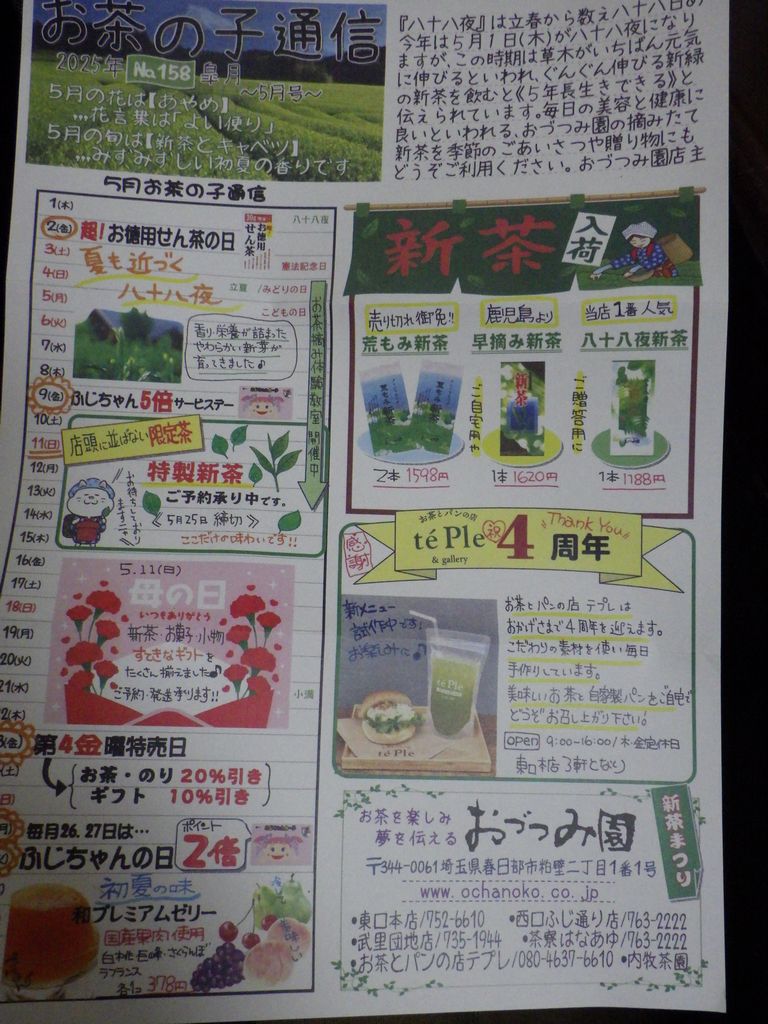 お茶の子通信
2025年 No.158 皐月 ～5月号～
5月の花は【あやめ】
…花言葉は「よい便り」
5月の旬は【新茶とキャベツ】
…みずみずしい初夏の香りです
『八十八夜』は立春から数え八十八日め
今年は5月1日(木)が八十八夜になり
ますが、この時期は草木がいちばん元気
に伸びるといわれ、ぐんぐん伸びる新緑
の新茶を飲むと《5年長生きできる》と
伝えられています。毎日の美容と健康に
良いといわれる、おづつみ園の摘みたて
新茶を季節のごあいさつや贈り物にも
どうぞご利用ください。おづつみ園店主
5月お茶の子通信
1(木) 八十八夜
2(金) 超!お徳用せん茶の日
お徳用せん茶
3(土) 憲法記念日
夏も近づく
4(日) みどりの日
八十八夜
5(月) 立夏/こどもの日
6(火)
7(水)
8(木)
香り・栄養が詰まった
やわらかい新芽が
育ってきました♪
お茶摘み体験教室 開催中
9(金) ふじちゃん5倍サービスデー
10(土)
11(日)
12(月)
13(火)
14(水)
15(木)
店頭に並ばない限定茶
特製新茶
ご予約承り中です。
《5月25日締切》
ここだけの味わいです!!
お待ちしておりますニャ
16(金)
17(土)
18(日)
19(月)
20(火)
21(水) 小満
2(木)
5.11(日)
母の日
いつもありがとう
新茶・お菓子・小物
すてきなギフトを
たくさん揃えました♪
ご予約・発送承ります!!
3(金) 第4金曜特売日
(土) お茶・のり 20%引き
ギフト 10%引き
毎月26.27日は…
ふじちゃんの日
ポイント
2倍
初夏の味
和プレミアムゼリー
国産果肉使用
白桃・巨峰・さくらんぼ
ラフランス
各1コ 378円
美味しい
新茶 入荷
売り切れ御免!!
荒もみ新茶
2本 1598円
鹿児島より
早摘み新茶
新茶
ご自宅用に
1本 1620円
当店1番人気
八十八夜新茶
ご贈答用に
1本 1188円
感謝
お茶とパンの店
té Ple
& gallery
祝 4周年
Thank You
新メニュー
試作中です!
お楽しみに♡
té Ple
té Ple
お茶とパンの店 テプレは
おかげさまで4周年を迎えます。
こだわりの素材を使い毎日
手作りしています。
美味しいお茶と自家製パンをご自宅で
どうぞお召し上がり下さい。
open 9:00-16:00/木・金定休日
東口本店3軒となり
新茶まつり
お茶を楽しみ
夢を伝える
おづつみ園
〒344-0061埼玉県春日部市粕壁二丁目1番1号
www.ochanoko.co.jp
•東口本店/752-6610 •西口ふじ通り店/763-2222
•武里団地店/735-1944 •茶寮はなあゆ/763-2222
•お茶とパンの店テプレ/080-4637-6610 •内牧茶園